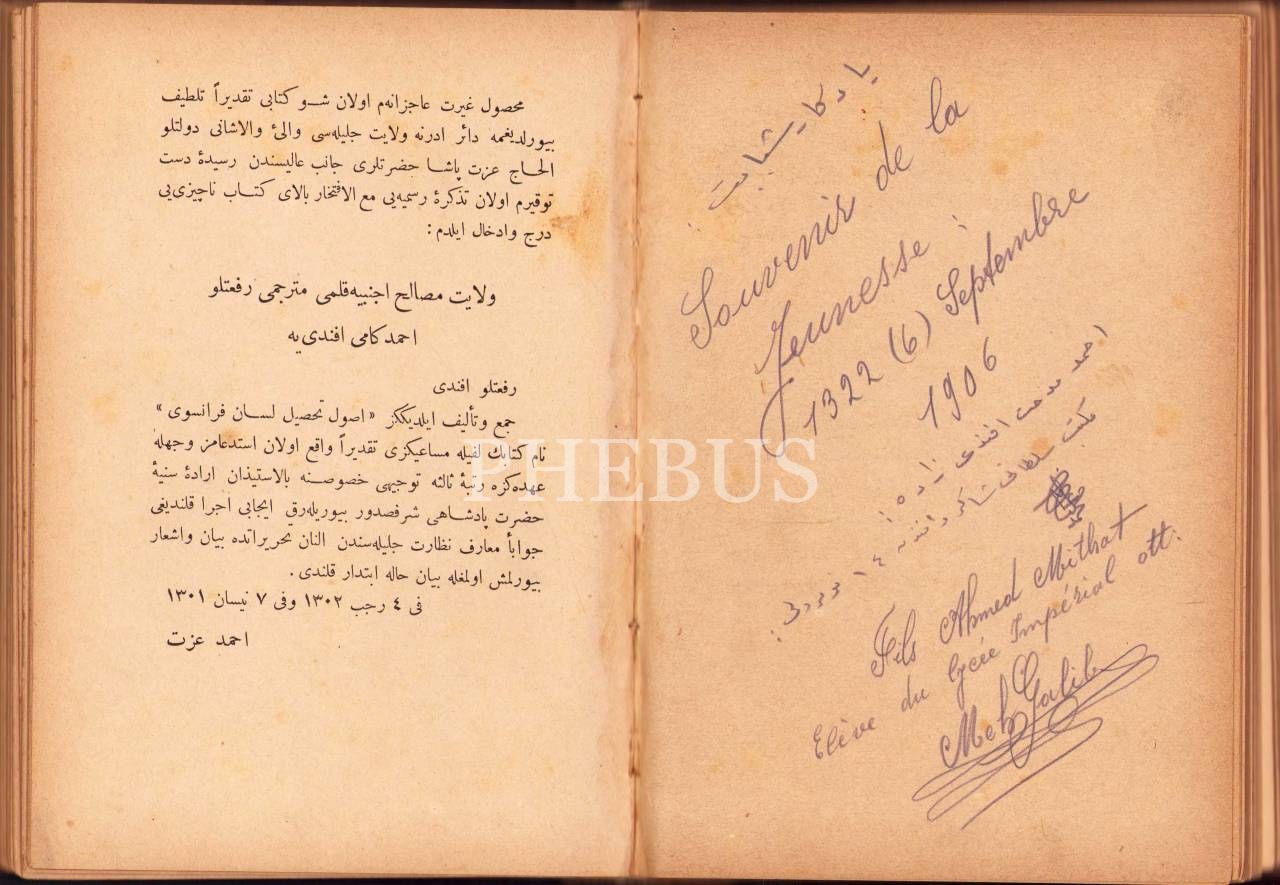 محصول غيرت عاجزانه‌م اولان شو كتابى تقديراً تلطيف
بيورلديغمه دائر ادرنه ولايت جليله‌سى والئ والاشانى دولتلو
الحاج عزت پاشا حضرتلرى جانب عاليسندن رسيدهٔ دست
توقيرم اولان تذكرهٔ رسميه‌يى مع الافتخار بالاى كتاب ناچيزى‌يى
درج وادخال ايلدم :
ولايت مصالح اجنبيه قلمى مترجمى رفعتلو
احمد كامى افندى‌يه
رفعتلو افندى
جمع وتأليف ايلديككز « اصول تحصيل لسان فرانسوى »
نام كتابك لفيله مساعيكزى تقديراً واقع اولان استدعامز وجهله
عهده‌كزه رتبهٔ ثالثه توجيهى خصوصنه بالاستيذان ارادهٔ سنيهٔ
حضرت پادشاهى شرفصدور بيوريله‌رق ايجابى اجرا قلنديغى
جواباً معارف نظارت جليله‌سندن النان تحريراتده بيان واشعار
بيورلمش اولمغله بيان حاله ابتدار قلندى .
فى ٤ رجب ١٣٠٢ وفى ٧ نيسان ١٣٠١
احمد عزت
يادكار شبابت
Souvenir de la
Jeunesse :
1322 (6) Septembre
1906
احمد مدحت افندى زاده
مكتب سلطانى شاكردانندن
Fils Ahmed Mithat
Elève du lycée Impérial ott.
Meh Galib
PHEBUS